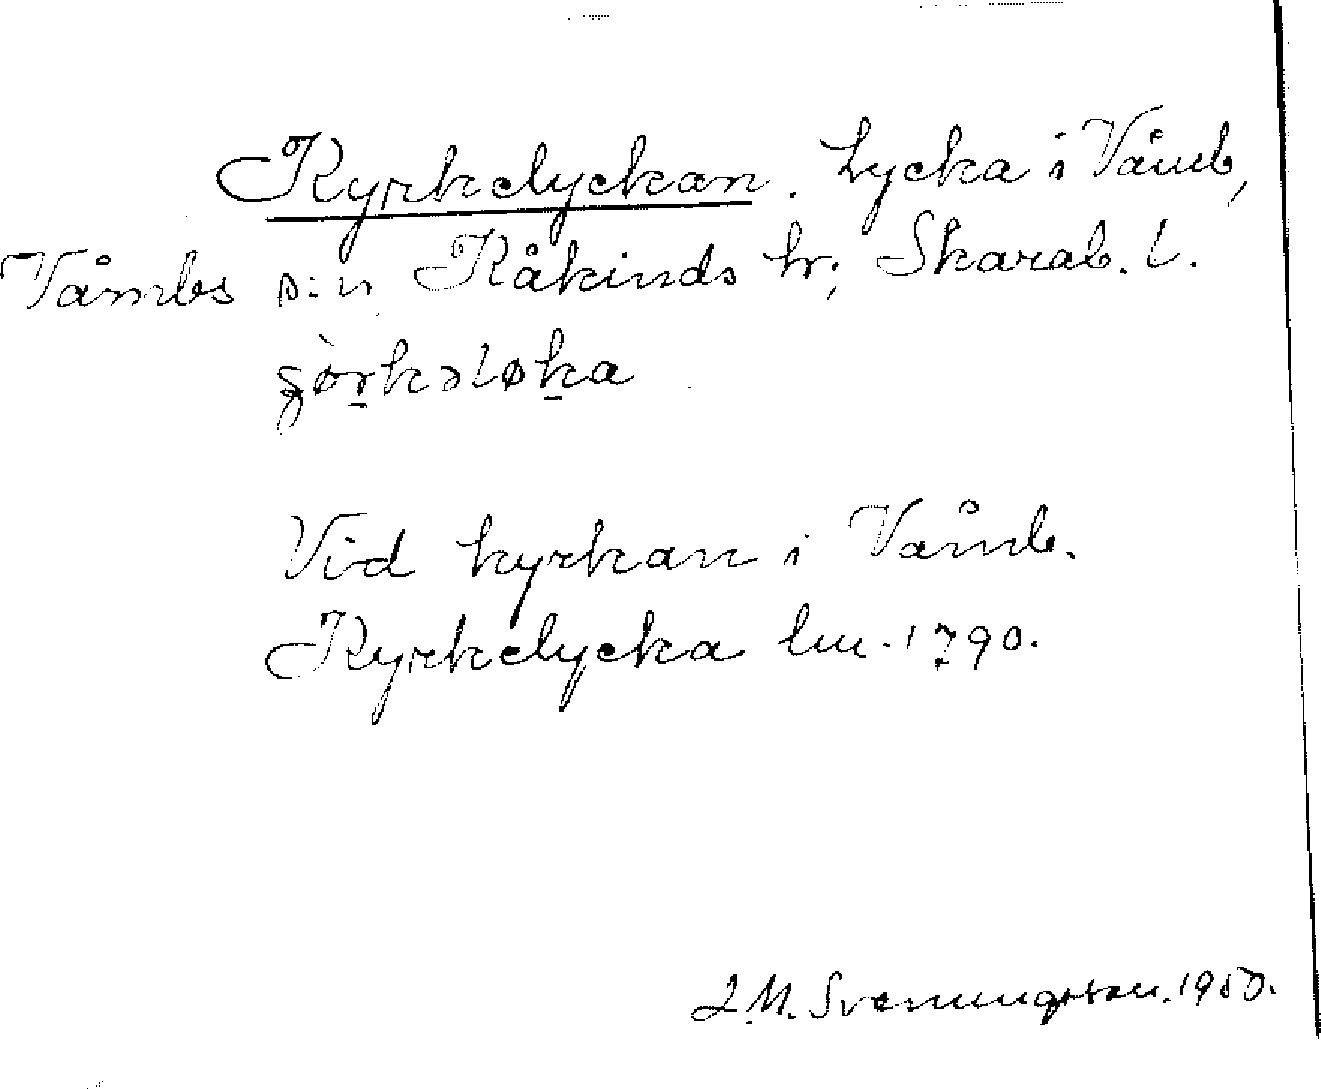 Kyrkelyckan. Lycka i Våmb,
Våmbs s:n, Kåkinds hr, Skarab. l.
Vid kyrkan i Våmb.
Kyrkelycka lm. 1790.
L.M. Svenungsson. 1950.